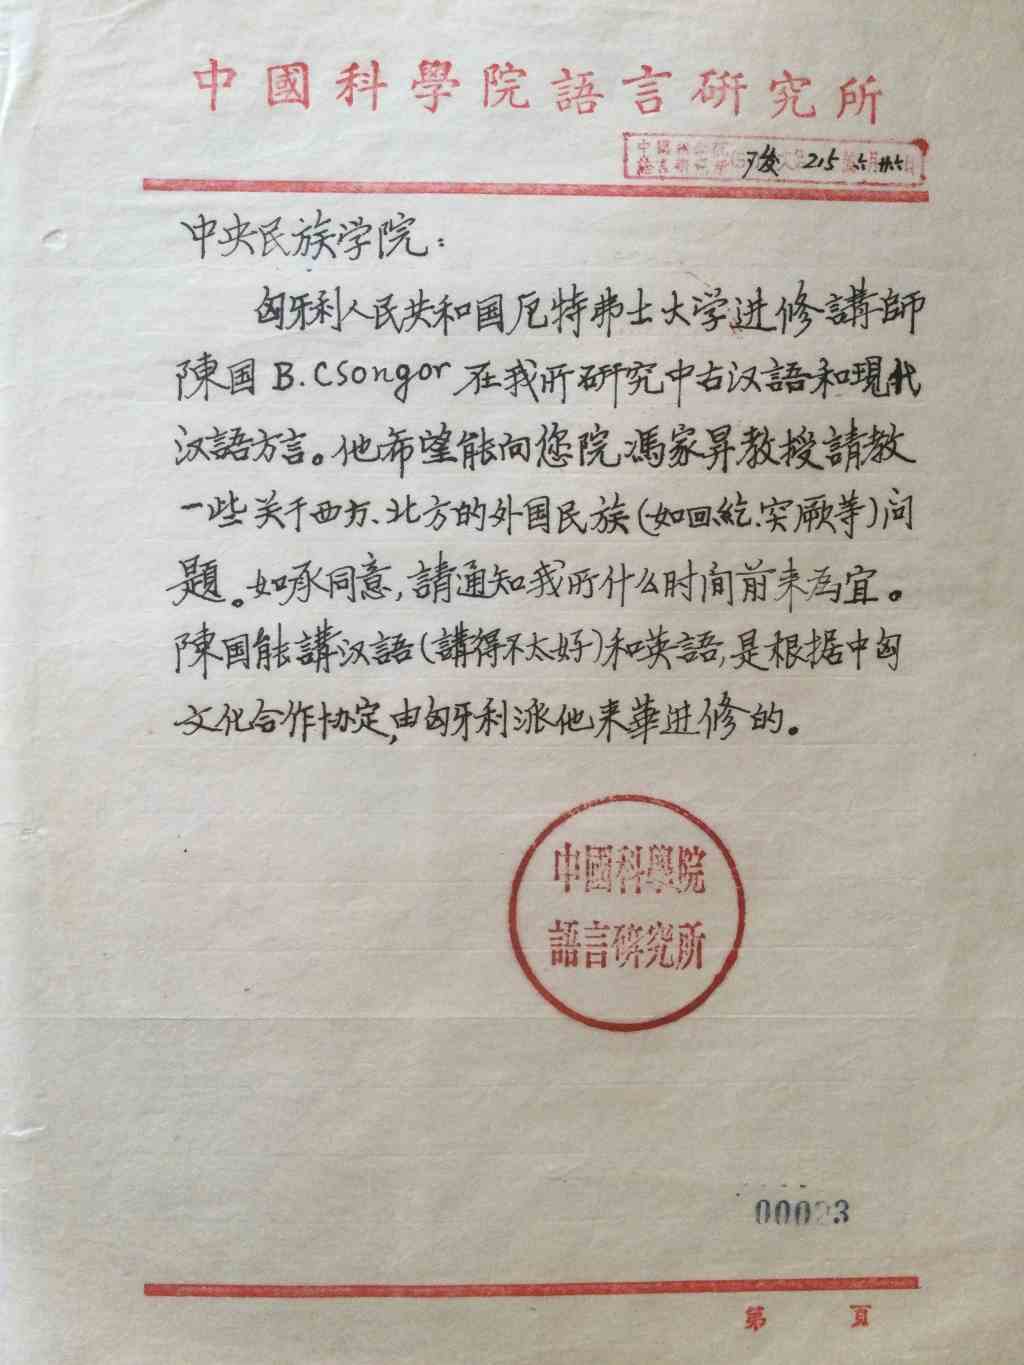 中國科學院語言研究所
中國科學院
語言研究所(57)发文第215號六月廿六日
中央民族学院：
匈牙利人民共和国厄特弗士大学进修講師
陳国B.Csongor在我所研究中古汉語和現代
汉語方言。他希望能向您院馮家昇教授請教
一些关于西方、北方的外国民族(如回紇、突厥等)问
題。如承同意,請通知我所什么时间前来為宜。
陳国能講汉語(講得不太好)和英語,是根据中匈
文化合作协定,由匈牙利派他来華进修的。
中國科學院
語言研究所
00023
第 頁